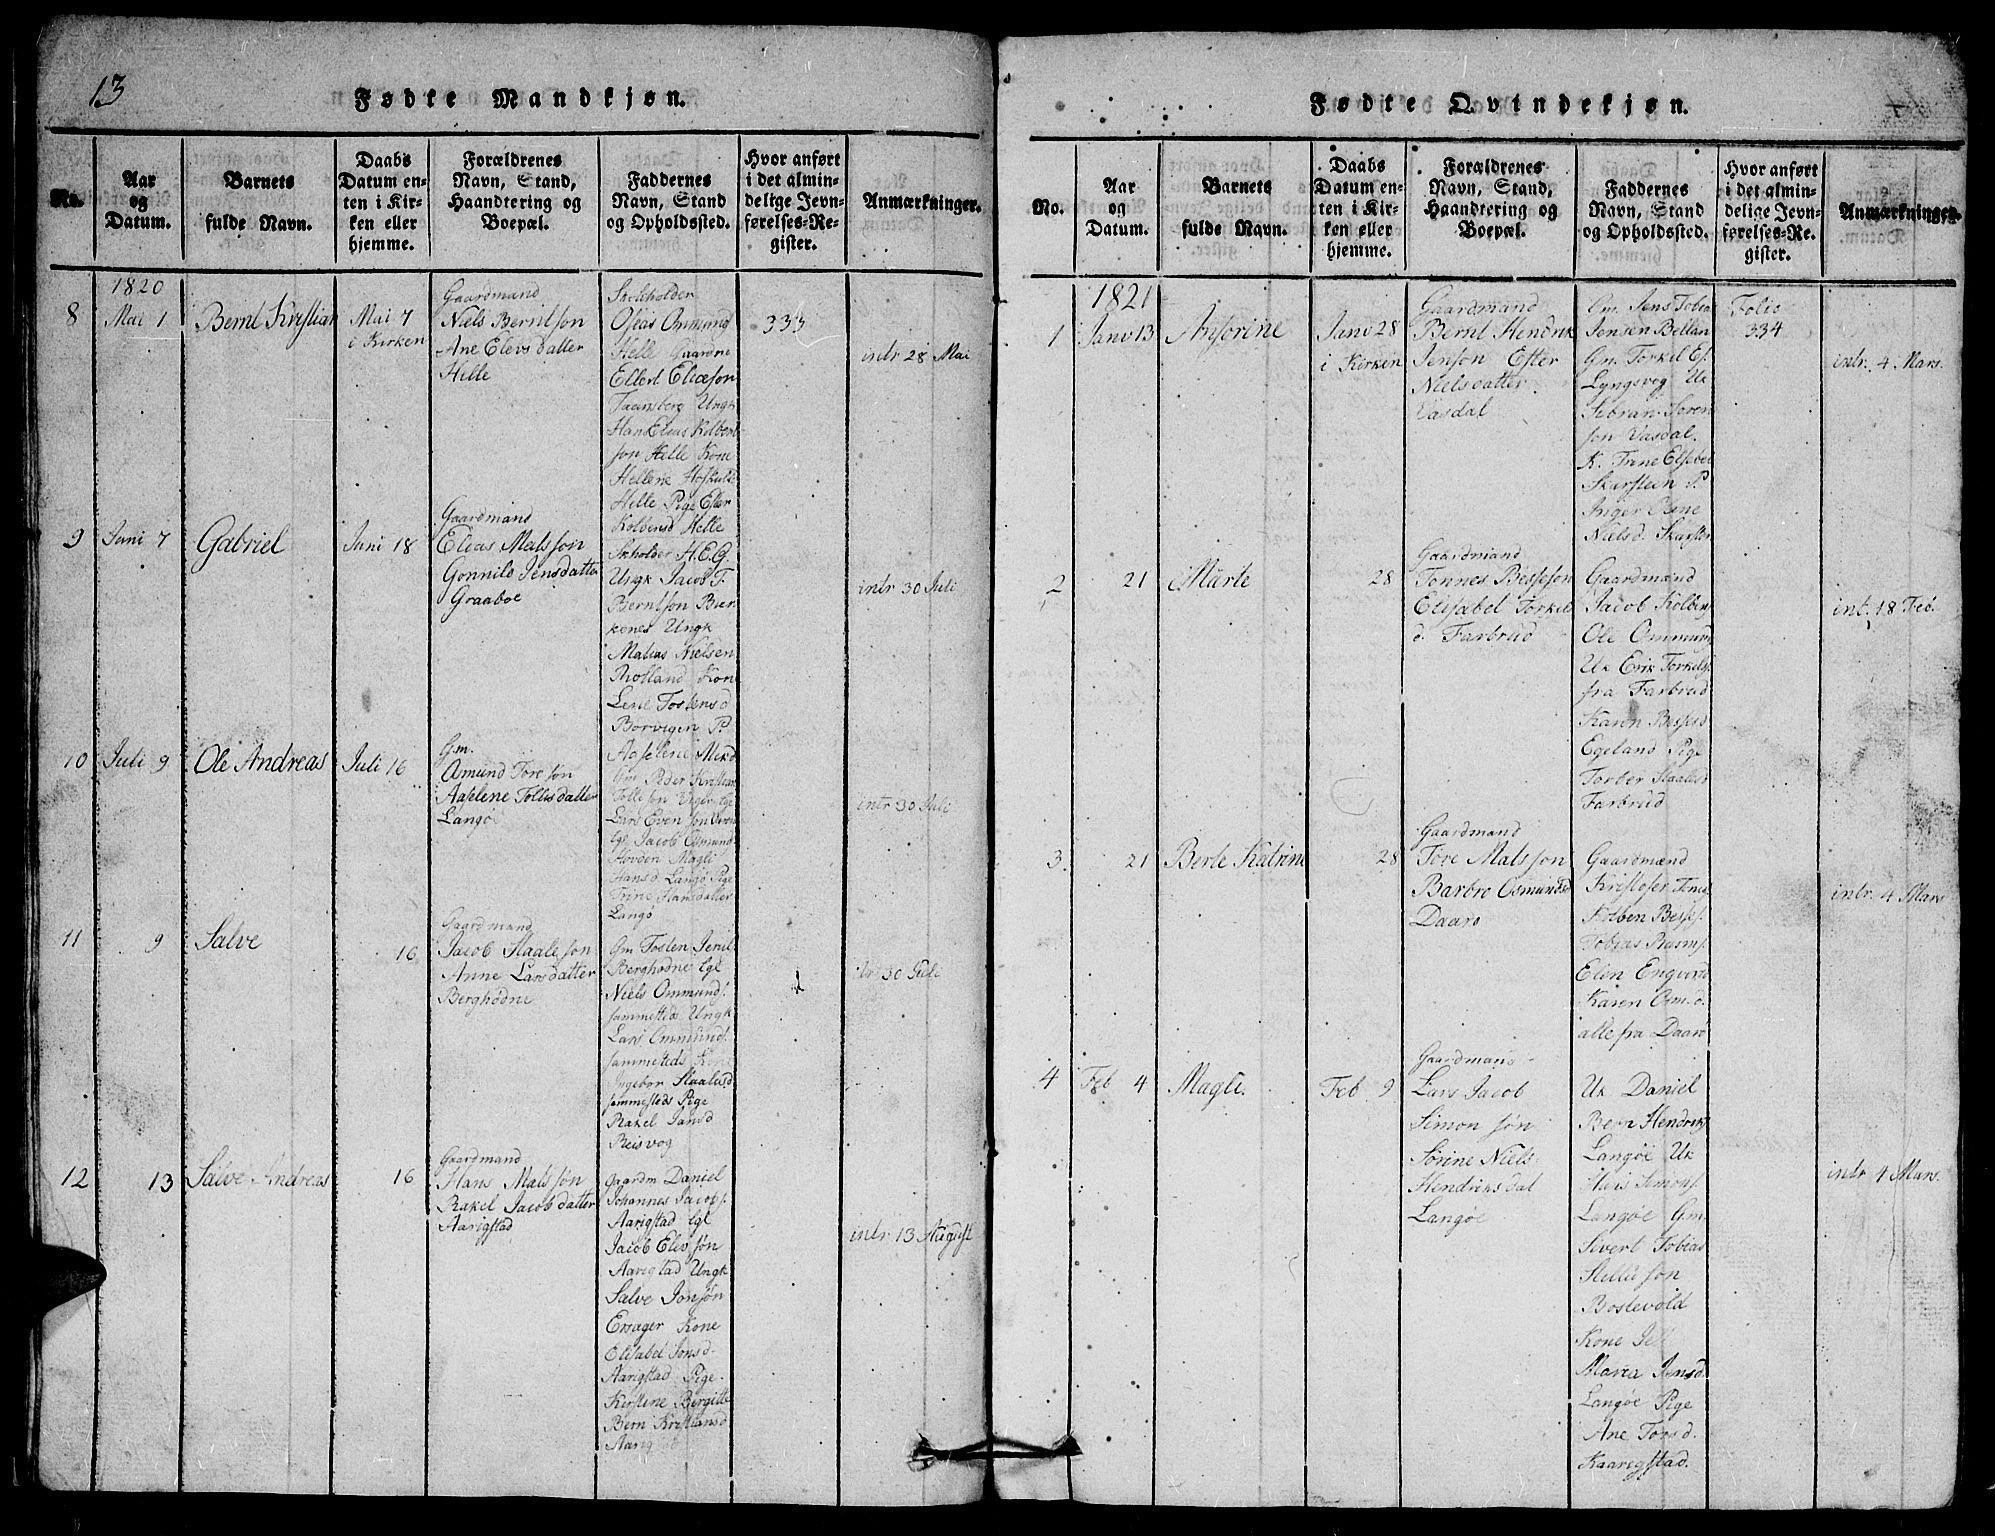 13
Fødte Mandkjøn.
No.
Aar
og
Datum.
Barnets
fulde Navn.
Daabs
Datum en-
ten i Kir-
ken eller
hjemme.
Forældrenes
Navn, Stand,
Haandtering og
Boepæl.
Faddernes
Navn, Stand
og Opholdssted.
Hvor anført
i det almin-
delige Jevn-
førelses-Re-
gister.
Anmærkninger.
1820
8
Mai 1
Bernt Kristian
Mai 7
i Kirken
Gaardmand
Niels Berntsøn
Ane Elevsdatter
Helle
Oseas Ommund
Helle Gaardne
Ellert Eliæsøn
Taansberg Ungk
Hans Eleas Kolben
søn Helle Kone
Hellene
Helle Pige Ester
Kolbensd Helle
333
intr 28 Mai
9
Juni 7
Gabriel
Juni 18
Gaardmand
Eleas Matssøn
Gonnild Jensdatter
Graaboe
Skholder H.E.G.
Ungk Jacob T.
Berntson Bier
kenes Ungk
Matias Nielsen
Kone
Lene Tostensd
Borvigen P.
intr 30 Juli
10
Juli 9
Ole Andreas
Juli 16
G.m.
Asmund Toresøn
Aaselene Tollisdatter
Langøe
Gm Peder Kristian
Lars Even søn
Jacob Osmund
Hovden Magli
Hansd Langø Pige
Trine Hansdatter
Langø
intr 30 Juli
11
9
Salve
16
Gaardmand
Jacob Staalesøn
Anne Larsdatter
Berghødne
Gm Tosten Jenss
Berghødne lgl
Niels Ommunds.
sammesteds Ungk
Lars Ommunds.
sammesteds Kone
Ingebor Staalesd
sammesteds Pige
Rakel Jansd
Reisvog
itr 30 Juli
12
13
Salve Andreas
16
Gaardmand
Hans Matssøn
Rakel Jacobdatter
Aarigstad
Gaardm Daniel
Johannes Jacobs.
Aarigstad lgl
Jacob Elevsøn
Aarigstad Ungk
Salve Jonsøn
Ersager Kone
Elisabel Jonsd
Aarigstad Pige
Kirstene Bergitte
Bern Kristiansd
Aarig
intr 13 August
Fødte Qvindekjøn.
No.
Aar
og
Datum.
Barnets
fulde Navn.
Daabs
Datum en-
ten i Kir-
ken eller
hjemme.
Forældrenes
Navn, Stand,
Haandtering og
Boepæl.
Faddernes
Navn, Stand
og Opholdssted.
Hvor anført
i det almin-
delige Jevn-
førelses-Re-
gister.
Anmærkninger.
1821
1
Janv 13
Ansorine
Janv 28
i Kirken
Gaardmand
Bernt Hendrik
Jenson Ester
Nielsdatter
Vasdal
Gm. Jens Tobia
Jensen Bellan
Gm. Torkel Es.
Lyngsvog Uk
Sebran Soren
søn Vasdal.
K. Trine Elsebet
Skarstein P.
Inger Olene
Nielsd. Skarsten
Folio
334
intr. 4 Mars.
2
21
Marte
28
Gaardmand
Tonnes Bessesøn
Elisabet Torkel
d. Farbrud
Gaardmænd
Jacob Kolbens
Ole Ommunds
Uk Erik Torkels.
fra Farbrud
Karen Bessesd
Egeland Pige
Torber Staalesd
Farbrud
int. 18 Feb.
3
21
Berte Katrine
28
Gaardmand
Tore Matssøn
Barbro Osmundsd
Daaro
Gaardmænd
Kristofer
Kolben Besses.
Tobias Rasms.
Elin Engvinds
Karen Osm.d.
alle fra Daaro
intr. 4 Mars
4
Feb 4
Magle.
Feb 9
Gaardmand
Lars Jacob
Simon søn
Sørine Niels
Hendriksdat
Langøe
Uk Daniel
Bern Hendriks
Langøe Uk
Simons.
Langøe G.m.
Sivert Tobias
Stellesøn
Bostevold
Kone Jel
Maria Jensd
Langøe Pige
Ane Torsd.
Kaarigstad.
intr 4 Mars.